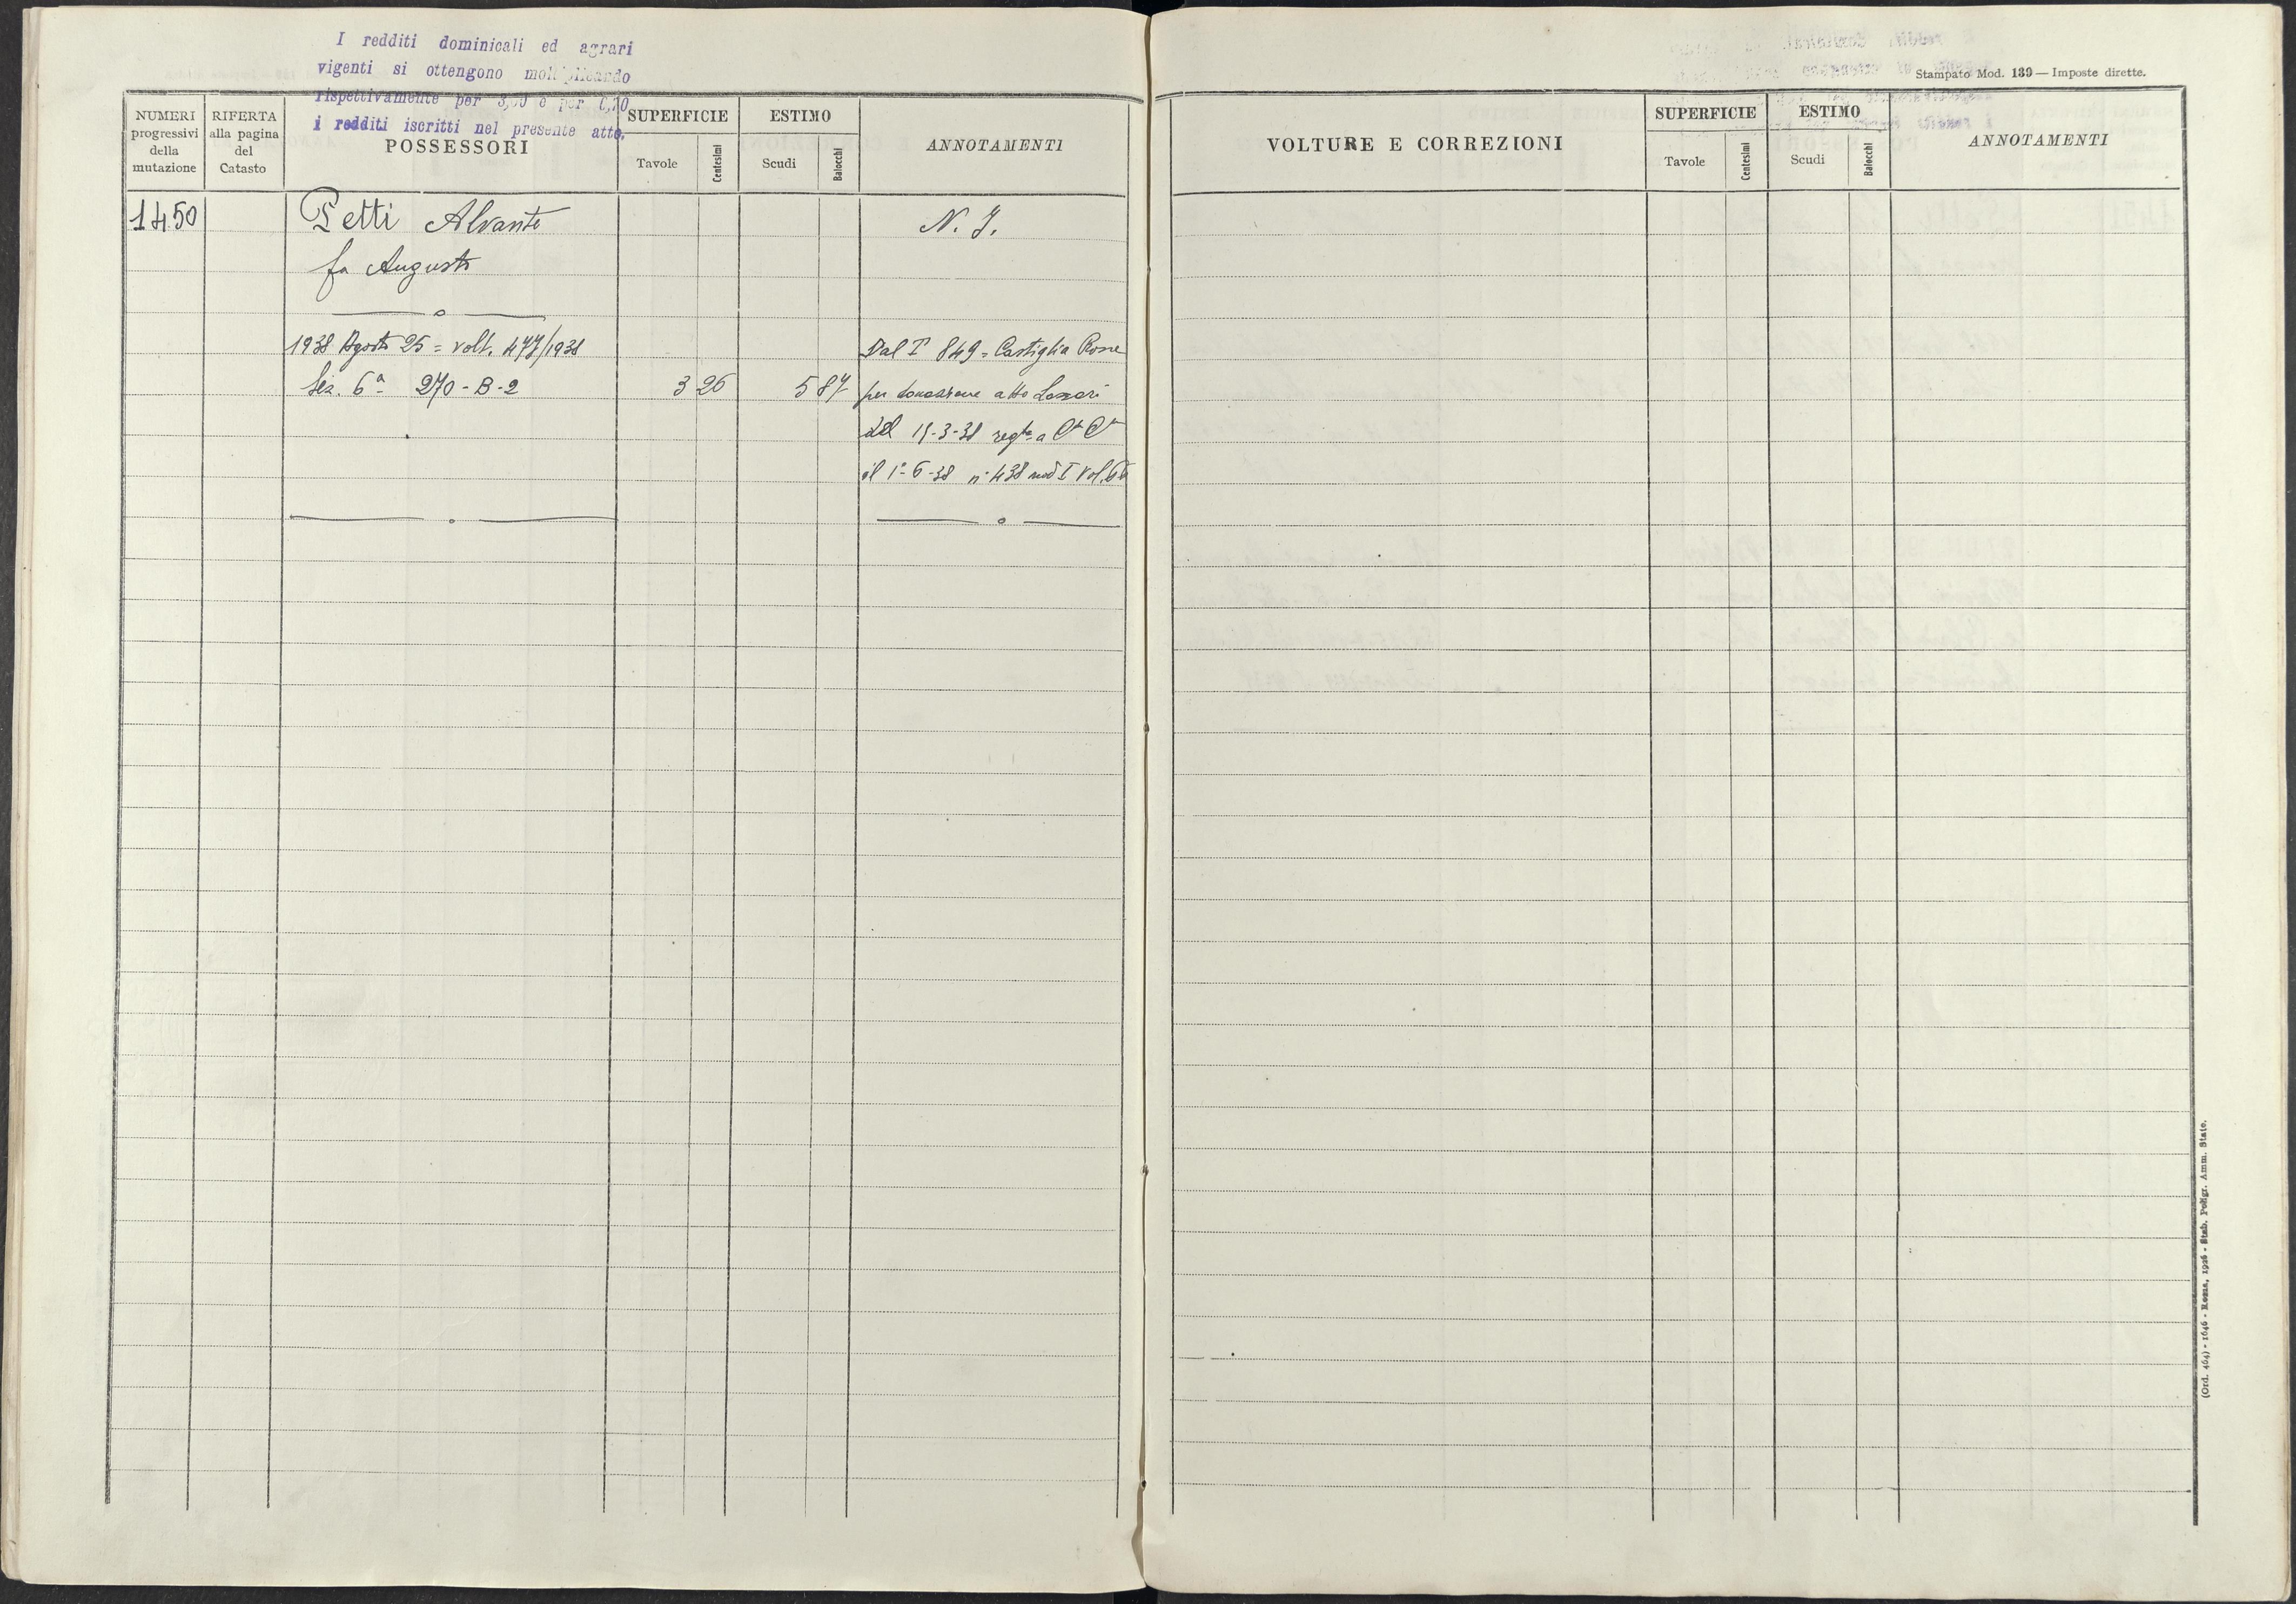 I redditi dominicali ed agrari
vigenti si ottengono moltiplicando
rispettivamente per 3,00 e per 0,70
i redditi iscritti nel presente atto.
Stampato Mod. 139 — Imposte dirette.
NUMERI progressivi della mutazione
RIFERTA alla pagina del Catasto
POSSESSORI
SUPERFICIE
Tavole
Centesimi
ESTIMO
Scudi
Baiocchi
ANNOTAMENTI
VOLTURE E CORREZIONI
SUPERFICIE
Tavole
Centesimi
ESTIMO
Scudi
Baiocchi
ANNOTAMENTI
1450 Petti Alvante N. I.
fu Augusto
1938 Agosto 25 = volt. 477/1938 Dal I° 849 = Castiglia
Sez. 6ª 270-B-2 3 26 5 87 per donazione atto
del 15-3-38 regto a
il 1°-6-38 n° 438 mod I vol. 66
(Ord. 464) - 1646 - Roma, 1926 - Stab. Poligr. Amm. Stato.